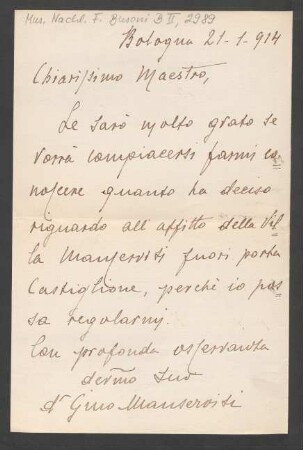 Mus. Nachl. F. Busoni B II, 2989
Bologna 21-1-914
Chiarissimo Maestro,
Le sarò molto grato se
vorrà compiacersi farmi co-
noscere quanto ha deciso
riguardo all'affitto della Vil-
la Manserviti fuori porta
Castiglione, perchè io pos-
sa regolarmi.
Con profonda osservanza
devmo Suo
dr Gino Manserviti